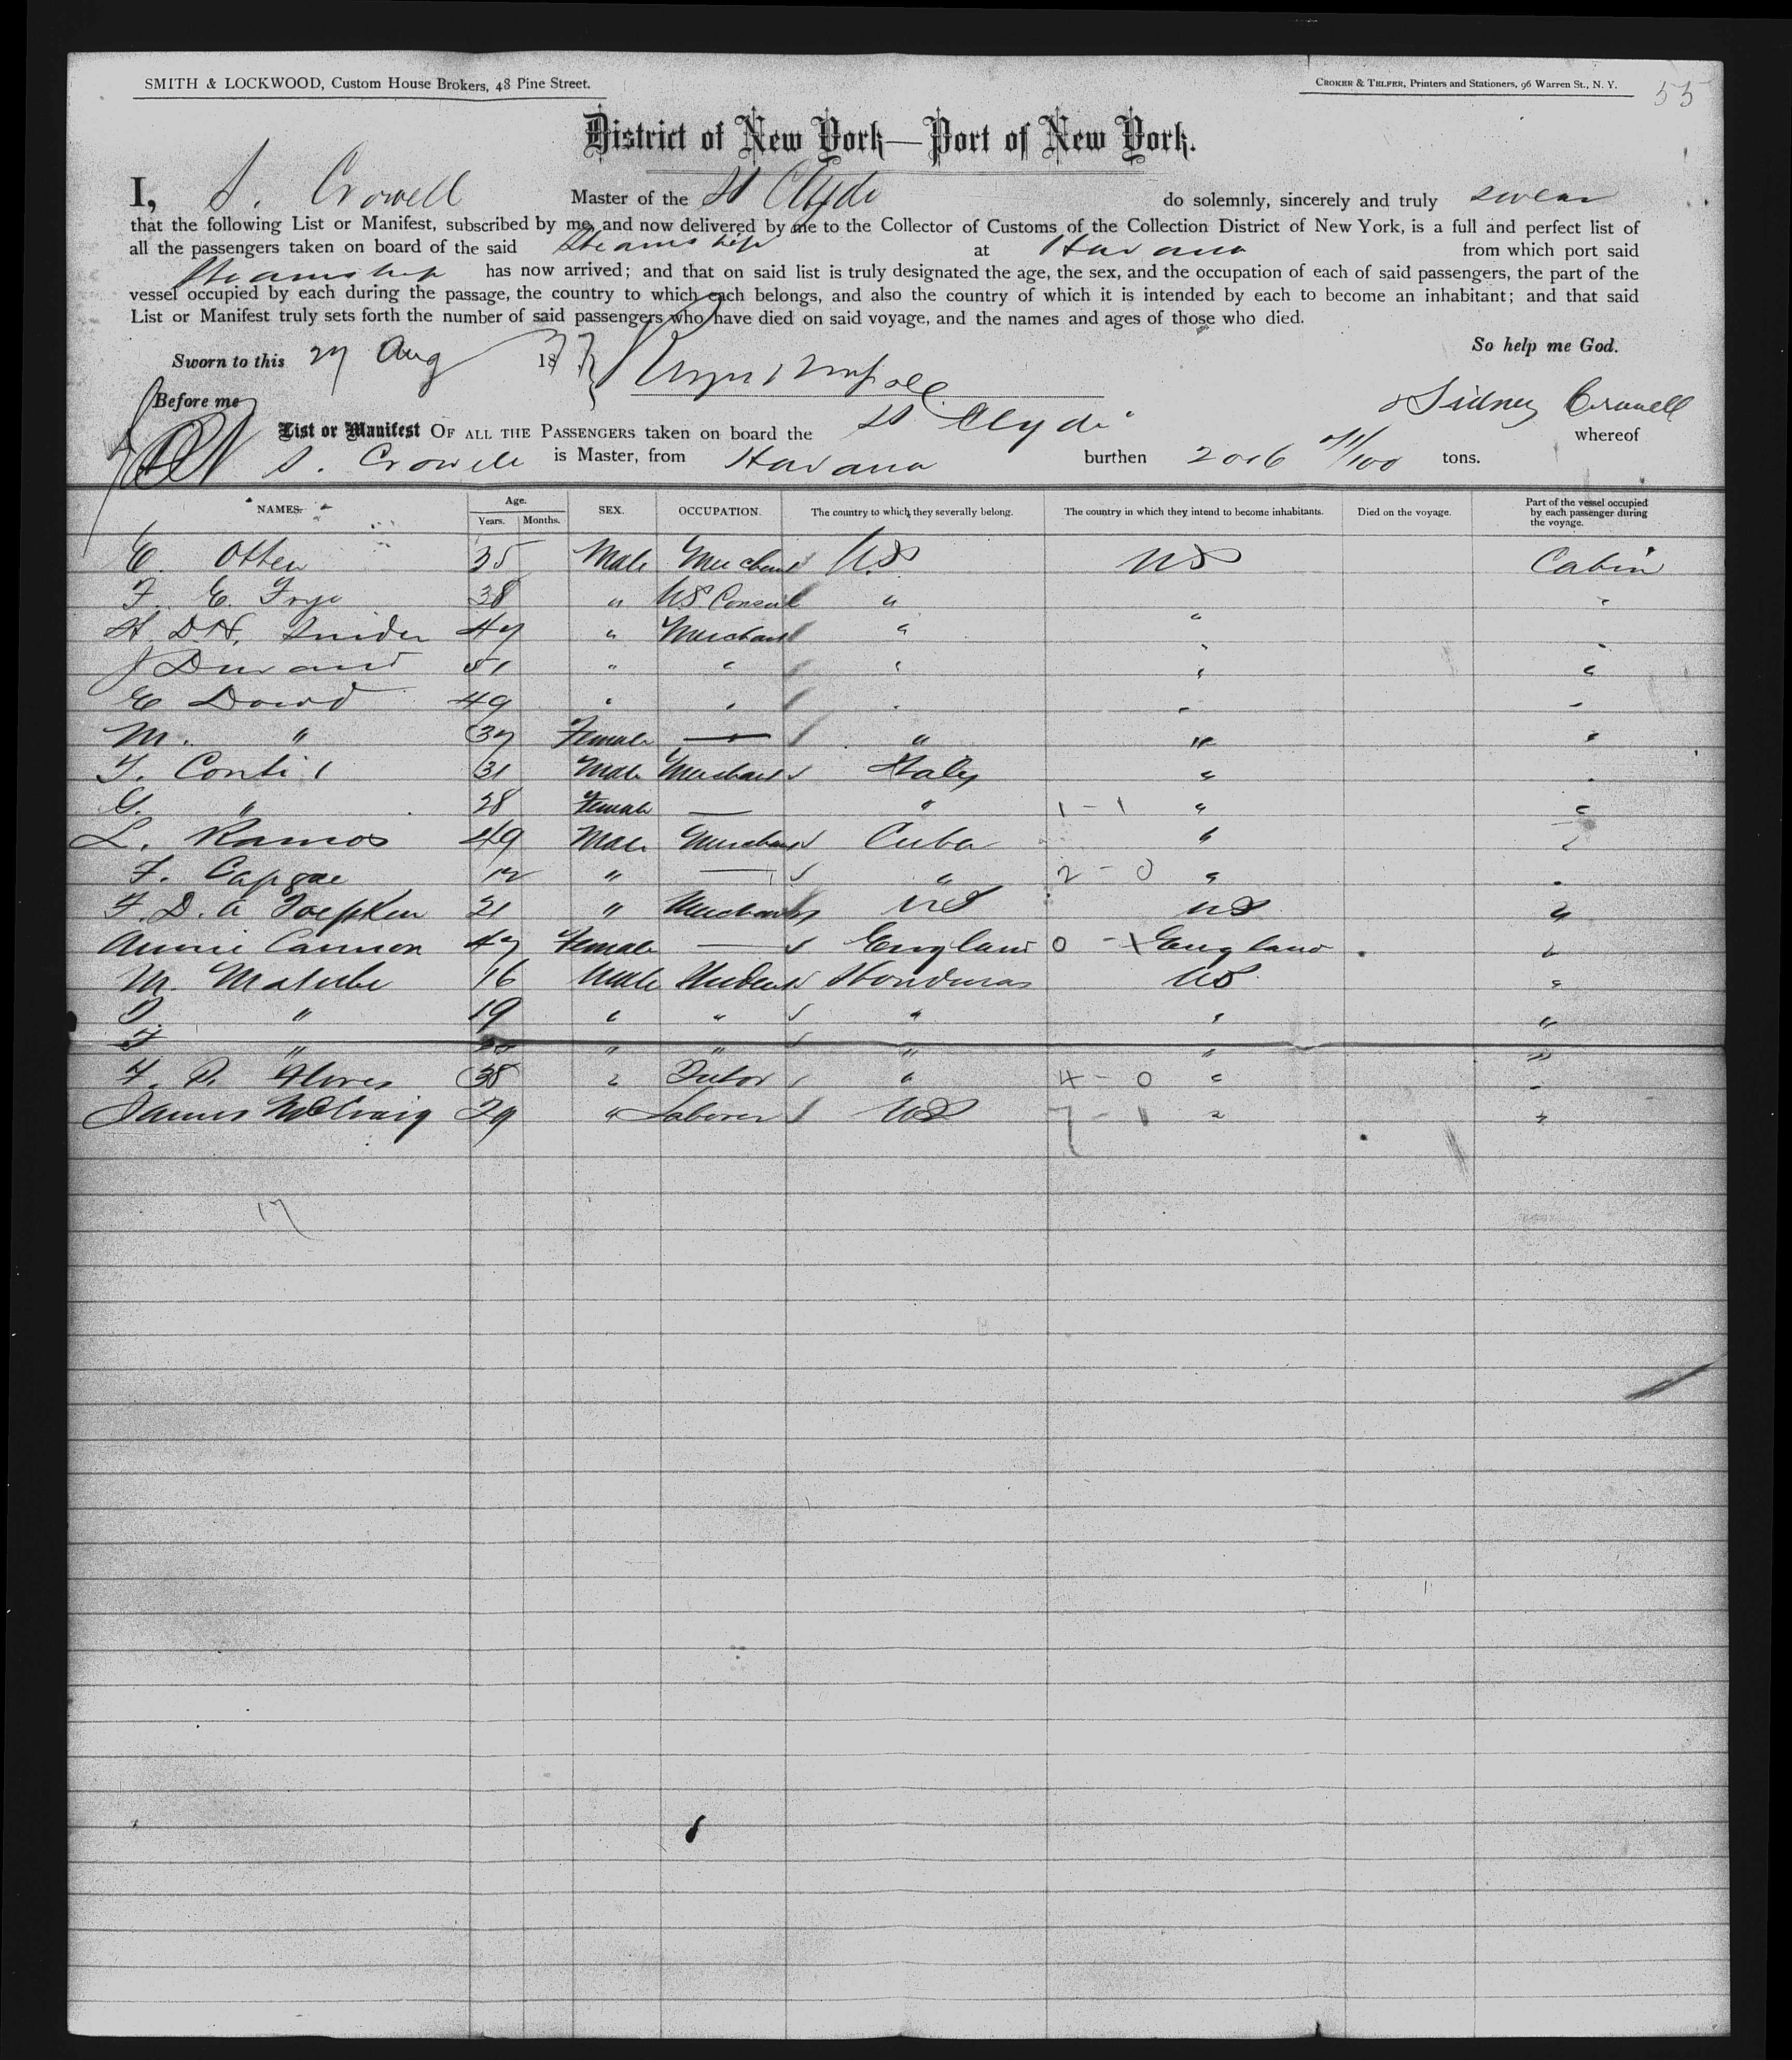 SMITH & LOCKWOOD, Custom House Brokers, 48 Pine Street.
CROKER & TELFER, Printers and Stationers, 96 Warren St., N. Y. 55
District of New York—Port of New York.
I, S. Crowell Master of the SS Clyde do solemnly, sincerely and truly swear
that the following List or Manifest, subscribed by me, and now delivered by me to the Collector of Customs of the Collection District of New York, is a full and perfect list of
all the passengers taken on board of the said Steamship at Havana from which port said
Steamship has now arrived; and that on said list is truly designated the age, the sex, and the occupation of each of said passengers, the part of the
vessel occupied by each during the passage, the country to which each belongs, and also the country of which it is intended by each to become an inhabitant; and that said
List or Manifest truly sets forth the number of said passengers who have died on said voyage, and the names and ages of those who died.
So help me God.
Sworn to this 27 Aug 1877
Before me Sidney Crowell
List or Manifest OF ALL THE PASSENGERS taken on board the SS Clyde whereof
S. Crowell is Master, from Havana burthen 2016 /100 tons.
NAMES. Age. Years. Months. SEX. OCCUPATION. The country to which they severally belong. The country in which they intend to become inhabitants. Died on the voyage. Part of the vessel occupied by each passenger during the voyage.
E. Otten 35 Male Merchant U.S US Cabin
F. E. Frye 38 " U.S. Consul " " "
H. D.H. Snider 47 " Merchant " " "
J Durand 51 " " " " "
E Dowd 49 " " " " "
M. " 37 Female — " " "
T. Conti 31 Male Merchant Italy " "
G. " 28 Female — " 1 - 1 " "
L. Ramos 49 Male Merchant Cuba " "
F. 12 " — " 2 - 0 " "
F. D. A Toepken 21 " Merchant US US "
Annie Cannon 47 Female — England 0 - 1 England "
M. 16 Male Student Honduras US "
" 19 " " " " "
F " " " " " "
F. Flores 38 " Tutor " 4 - 0 " "
James McCraig 29 " Laborer US 7 - 1 " "
17